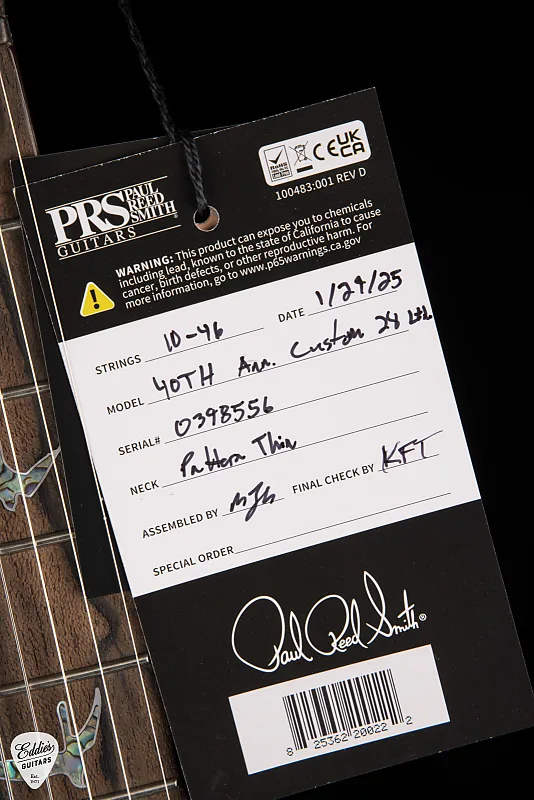 RoHS CE UK CA
100483:001 REV D
PRS PAUL REED SMITH®
GUITARS
WARNING: This product can expose you to chemicals
including lead, known to the state of California to cause
cancer, birth defects, or other reproductive harm. For
more information, go to www.p65warnings.ca.gov
STRINGS 10-46 DATE 1/29/25
MODEL 40TH Ann. Custom 24 Ltd.
SERIAL# 0398556
NECK Pattern Thin
ASSEMBLED BY FINAL CHECK BY KFT
SPECIAL ORDER
Paul Reed Smith®
8 25362 20022 2
Eddie's
GUITARS